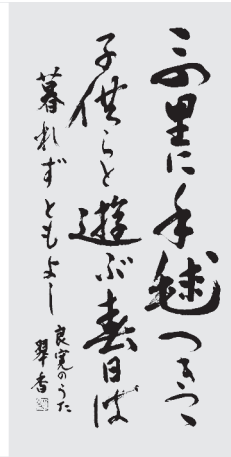 この里に手毬つきつゝ
子供らと遊ぶ春日は
暮れずともよし
良寛のうた
翠香